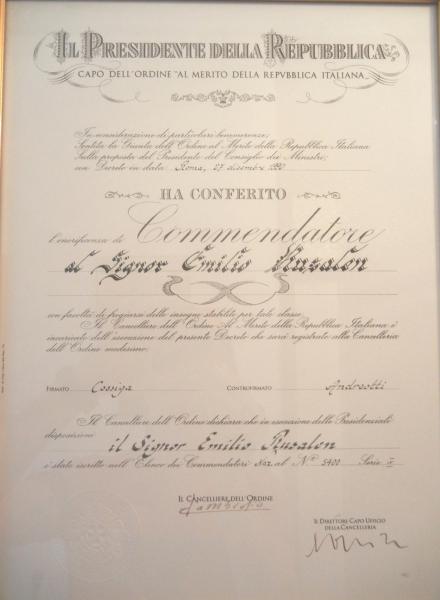 IL PRESIDENTE DELLA REPUBBLICA
CAPO DELL'ORDINE "AL MERITO DELLA REPVBBLICA ITALIANA"
In considerazione di particolari benemerenze;
Sentita la Giunta dell'Ordine al Merito della Repubblica Italiana
Sulla proposta del Presidente del Consiglio dei Ministri;
con Decreto in data Roma, 27 dicembre
HA CONFERITO
l'onorificenza di Commendatore
al Signor Emilio
con facoltà di fregiarsi delle insegne stabilite per tale classe.
Il Cancelliere dell'Ordine Al Merito della Repubblica Italiana è
incaricato dell'esecuzione del presente Decreto che sarà registrato alla Cancelleria
dell'Ordine medesimo.
FIRMATO Cossiga CONTROFIRMATO Andreotti
Il Cancelliere dell'Ordine dichiara che in esecuzione delle Presidenziali
disposizioni il Signor Emilio
è stato iscritto nell'Elenco dei Commendatori Naz. al N° 5400 Serie IV
IL CANCELLIERE DELL'ORDINE
IL DIRETTORE CAPO UFFICIO
DELLA CANCELLERIA